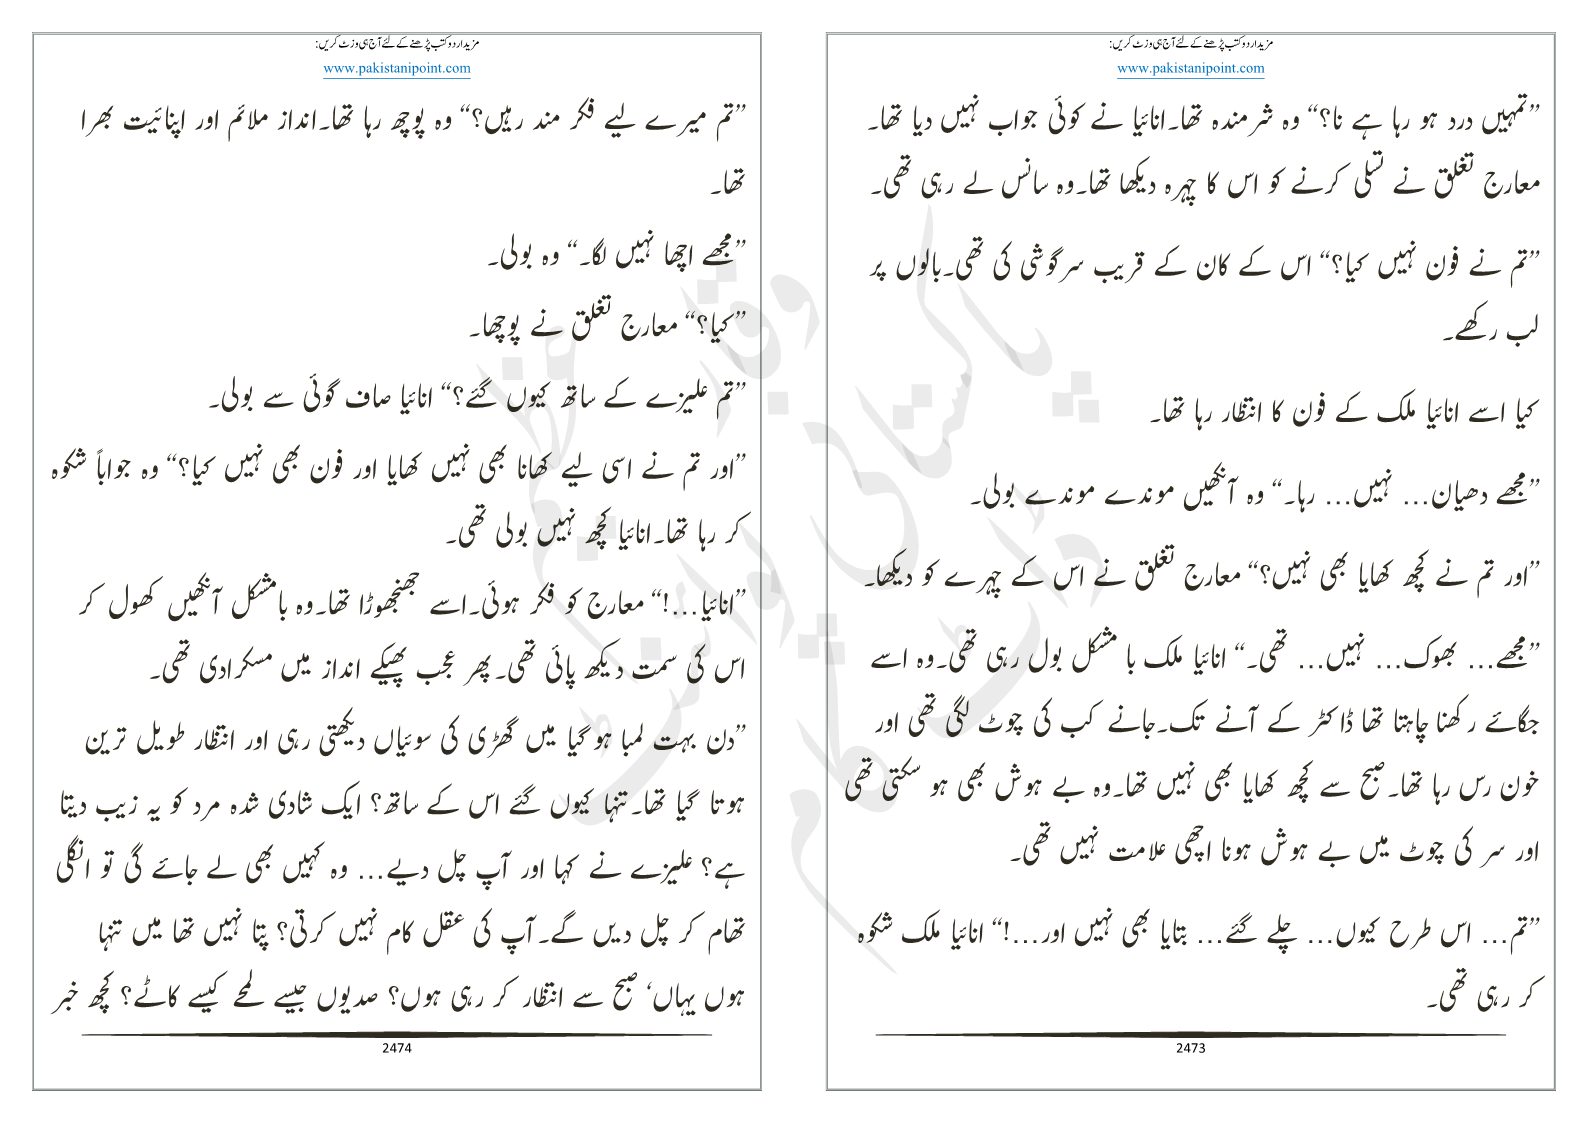 مزید اردو کتب پڑھنے کے لئے آج ہی وزٹ کریں:
www.pakistanipoint.com
”تمہیں درد ہو رہا ہے نا؟“ وہ شرمندہ تھا۔انائیا نے کوئی جواب نہیں دیا تھا۔
معارج تغلق نے تسلی کرنے کو اس کا چہرہ دیکھا تھا۔وہ سانس لے رہی تھی۔
”تم نے فون نہیں کیا؟“ اس کے کان کے قریب سرگوشی کی تھی۔بالوں پر
لب رکھے۔
کیا اسے انائیا ملک کے فون کا انتظار رہا تھا۔
”مجھے دھیان... نہیں... رہا۔“ وہ آنکھیں موندے موندے بولی۔
”اور تم نے کچھ کھایا بھی نہیں؟“ معارج تغلق نے اس کے چہرے کو دیکھا۔
”مجھے... بھوک... نہیں... تھی۔“ انائیا ملک با مشکل بول رہی تھی۔وہ اسے
جگائے رکھنا چاہتا تھا ڈاکٹر کے آنے تک۔جانے کب کی چوٹ لگی تھی اور
خون رس رہا تھا۔صبح سے کچھ کھایا بھی نہیں تھا۔وہ بے ہوش بھی ہو سکتی تھی
اور سر کی چوٹ میں بے ہوش ہونا اچھی علامت نہیں تھی۔
”تم... اس طرح کیوں... چلے گئے... بتایا بھی نہیں اور...!“ انائیا ملک شکوہ
کر رہی تھی۔
2473
مزید اردو کتب پڑھنے کے لئے آج ہی وزٹ کریں:
www.pakistanipoint.com
”تم میرے لیے فکر مند رہیں؟“ وہ پوچھ رہا تھا۔انداز ملائم اور اپنائیت بھرا
تھا۔
”مجھے اچھا نہیں لگا۔“ وہ بولی۔
”کیا؟“ معارج تغلق نے پوچھا۔
”تم علیزے کے ساتھ کیوں گئے؟“ انائیا صاف گوئی سے بولی۔
”اور تم نے اسی لیے کھانا بھی نہیں کھایا اور فون بھی نہیں کیا؟“ وہ جواباً شکوہ
کر رہا تھا۔انائیا کچھ نہیں بولی تھی۔
”انائیا...!“ معارج کو فکر ہوئی۔اسے جھنجھوڑا تھا۔وہ بامشکل آنکھیں کھول کر
اس کی سمت دیکھ پائی تھی۔پھر عجب پھیکے انداز میں مسکرادی تھی۔
”دن بہت لمبا ہو گیا میں گھڑی کی سوئیاں دیکھتی رہی اور انتظار طویل ترین
ہوتا گیا تھا۔تنہا کیوں گئے اس کے ساتھ؟ ایک شادی شدہ مرد کو یہ زیب دیتا
ہے؟ علیزے نے کہا اور آپ چل دیے... وہ کہیں بھی لے جائے گی تو انگلی
تھام کر چل دیں گے۔آپ کی عقل کام نہیں کرتی؟ پتا نہیں تھا میں تنہا
ہوں یہاں‘ صبح سے انتظار کر رہی ہوں؟ صدیوں جیسے لمحے کیسے کاٹے؟ کچھ خبر
2474
پاکستانی پوائنٹ ڈاٹ کام